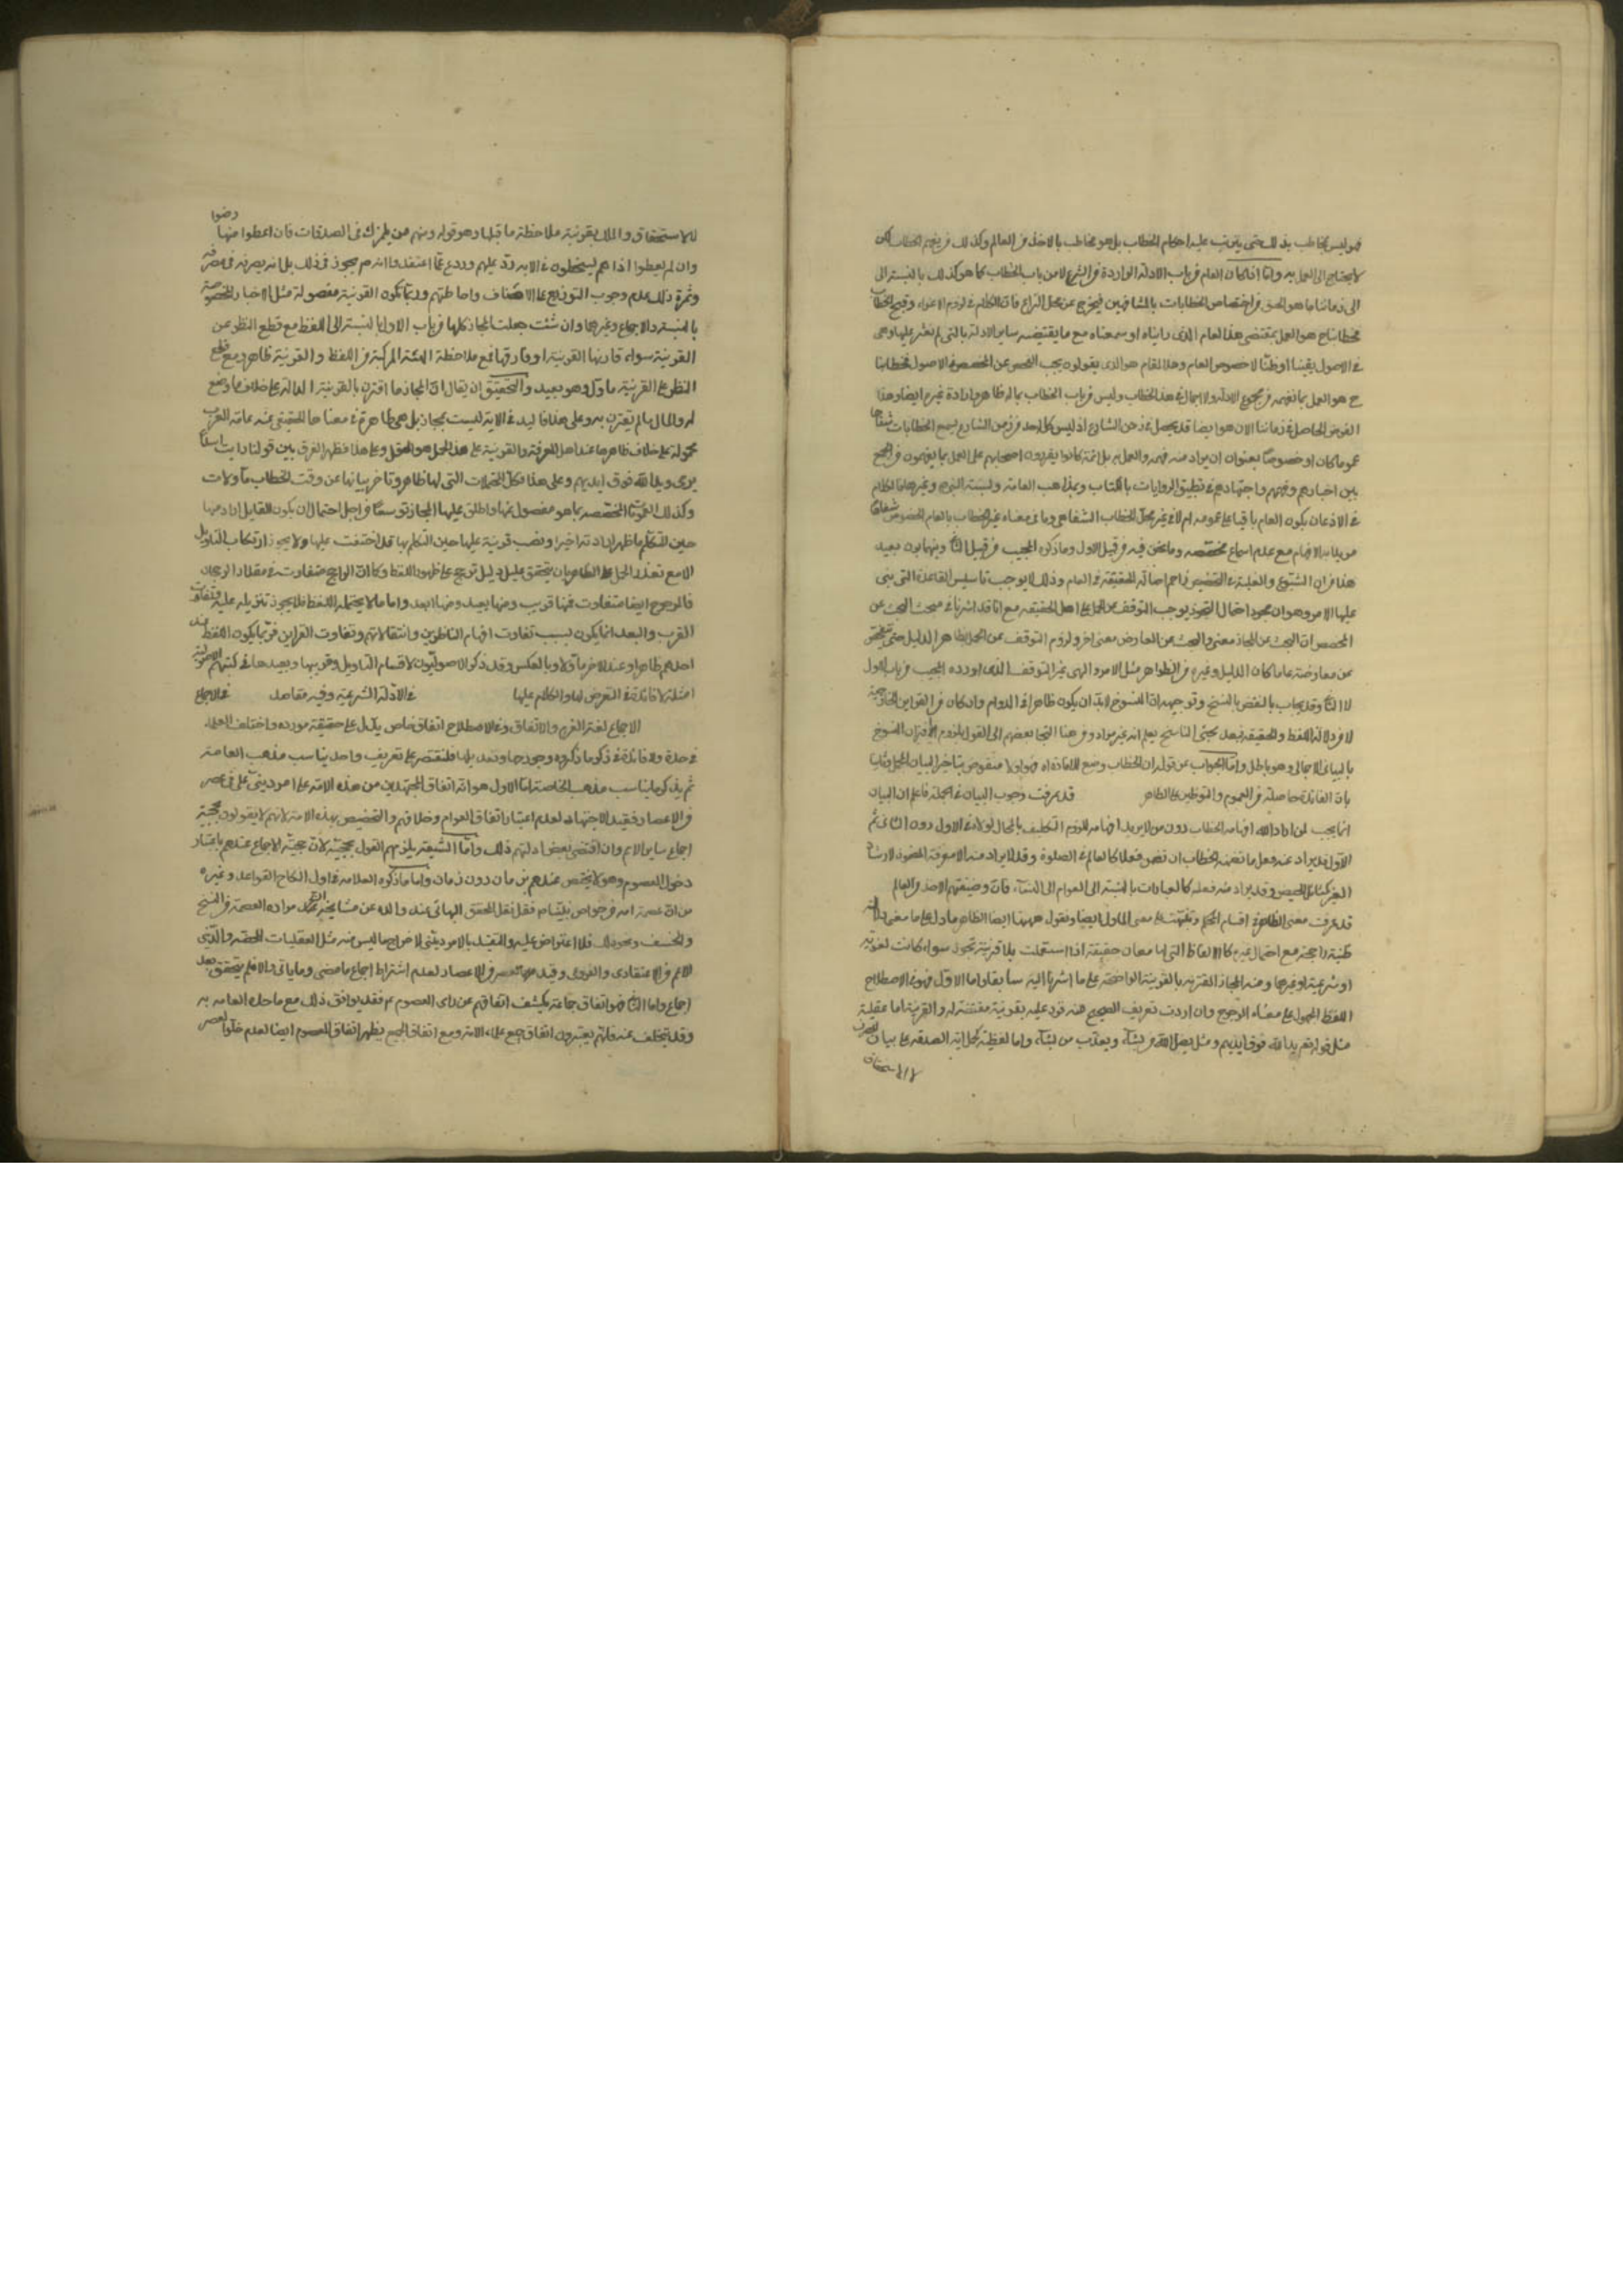 فهو ليس مخاطب بذلك حتى يترتب عليه احكام الخطاب بل هو مخاطب بالاخذ من العالم وكذلك من يفهم الخطاب لكن
لا يحتاج الى العمل به واما اذا كان العام من باب الادلة الواردة في الشرع لا من باب الخطاب كما هو كذلك بالنسبة الى
الى زماننا ما هو الحق من اختصاص الخطابات بالمشافهين فيخرج عن محل النزاع فان الكلام في لزوم الاغراء وقبح الخطاب
مخطابنا ح هو العمل بمقتضى هذا العام الذى رايناه او سمعناه مع ما يقتضيه ساير الادلة التى لم نعثر عليها وهى
في الاصول يقينا او ظنا لا خصوص العام وهذا المقام هو الذى يقولون يجب الفحص عن المخصص في الاصول فخطابنا
ح هو العمل بما نفهمه من مجموع الادلة ولا اجمال في هذا الخطاب وليس من باب الخطاب بما له ظاهر وارادة غيره ايضا وهذا
الفرض الحاصل في زماننا الان هو ايضا قد يحصل في زمن الشارع اذ ليس كل احد في زمن الشارع يسمع الخطابات شفاها
عموما كان او خصوصا بعنوان ان يراد منه فهمه والعمل به بل ائمة كانوا يقررون اصحابهم على العمل بما يفهمون من الجمع
بين اخبارهم وفهمهم واجتهادهم في تطبيق الروايات بالكتاب وبمذاهب العامة ولسنة النبى وغيرها فالكلام
في الاذعان بكون العام باقيا على عمومه ام لا في غير محل الخطاب الشفاهى وما فى معناه غير الخطاب بالعام المخصوص شفاها
من يلابه الافهام مع عدم اسماع مخصصه وما نحن فيه من قبيل الاول وما ذكره المجيب من قبيل الثانى وبينهما بون بعيد
هذا مع ان الشيوع والغلبة في التخصيص زاحم اصالة الحقيقة في العام وذلك لا يوجب تاسيس القاعدة التى بنى
عليها الامر وهو ان مجرد احتمال التجوز يوجب التوقف عن الحمل على اصل الحقيقة مع انا قد اشرنا في مبحث البحث عن
المخصص ان البحث عن المجاز معنى والبحث عن المعارض معنى اخر ولزوم التوقف عن الحمل بظاهر الدليل حتى يتفحص
عن معارضته عاما كان الدليل وغيره من الظواهر مثل الامر والنهى غير التوقف الذى اورده المجيب من باب الاول
لا الثانى وقد يجاب بالنقض بالنسخ وتوجيهه ان المنسوخ لابد ان يكون ظاهرا في الدوام وان كان من القراين الخارجية
لا من دلالة اللفظ والحقيقة فبعد مجئ الناسخ يعلم انه غير مراد ومن هنا التجا بعضهم الى القول بلزوم الاقتران المنسوخ
بالبيان الاجمالى وهو باطل واما الجواب عن قوله ان الخطاب وضع للافادة اه فهو اولا منقوض بتاخير البيان المجمل وثانيا
بان الفائدة حاصلة من العموم والتوطين على الظاهر قد عرفت وجوب البيان في الجملة فاعلم ان البيان
انما يجب لمن اراد الله افهامه الخطاب دون من لا يريد افهامه للزوم التكليف بالمحال لولاه في الاول دون الثانى ثم
الاول قد يراد عنه فعل ما تضمنه الخطاب ان تضمن فعلا كالعالم في الصلوة وقد لا يراد منه الا معرفة المضمون لارشاد
الغير كمسائل الحيض وقد يراد منه فعله كالعبادات بالنسبة الى العوام الى النساء فان وظيفتهم الاخذ من العالم
قد عرفت معنى الظاهر في اقسام المحكم ونبهت على معنى الماول ايضا ونقول ههنا ايضا الظاهر ما دل على معنى دلالة
ظنية راجحة مع احتمال غيره كالالفاظ التى لها معان حقيقة اذا استعملت بلا قرينة تجوز سواء كانت لغوية
او شرعية او غيرها ومنه المجاز المقترنه بالقرينة الواضحة على ما اشرنا اليه سابقا واما الاول فهو في الاصطلاح
اللفظ المحمول على معناه المرجوح وان اردت تعريف الصحيح منه فزد عليه بقرينة مقتضية له والقرينة اما عقلية
مثل قوله تعم يد الله فوق ايديهم ومثل يضل الله من يشاء ويعذب من يشاء واما لفظية كحمل اية الصدقة على بيان المصرف
لا الاستحقاق
للاستحقاق والملك بقرينة ملاحظة ما قبلها وهو قوله ومنهم من يلمزك فى الصدقات فان اعطوا منها رضوا
وان لم يعطوا اذا هم يسخطون في الاية رد عليهم وردع عما اعتقدوا انه م يجوز فى ذلك بل انه يصرفه فى مصرفه
وثمرة ذلك عدم وجوب التوزيع على الاصناف واحاطتهم وربما تكون القرينة مفصولة مثل الاخبار المخصوصة
بالنسبة والاجماع وغيرها وان شئت جعلت المجاز كلها من باب الاول بالنسبة الى اللفظ مع قطع النظر عن
القرينة سواء قارنها القرينة او فارقها فمع ملاحظة الهيئة المركبة من اللفظ والقرينة ظاهر ومع قطع
النظر عن القرينة ماول وهو بعيد والتحقيق ان يقال ان المجاز ما اقترن بالقرينة الدالة على خلاف ما وضع
له والماول ما لم يقترن به وعلى هذا فاليد في الاية ليست بمجاز بل هى ظاهرة في معناها الحقيقى عند عامة العرب
محمولة على خلاف ظاهرها عند اهل المعرفة والقرينة على هذا الحمل هو العقل وعلى هذا فظهر الفرق بين قولنا رايت اسدا
يرمى ويد الله فوق ايديهم وعلى هذا فكل المجملات التى لها ظاهر وتاخر بيانها عن وقت الخطاب ماولات
وكذلك العمومات المخصصة بما هو مفصول عنها واطلق عليها المجاز توسعا من اجل احتمال ان يكون القايل اراد منها
حين التكلم ما ظهر ارادته اخيرا ونصب قرينة عليها حين التكلم بها قد اختفت علينا ولا يجوز ارتكاب التاويل
الا مع تعذر الحمل على الظاهر بان يتحقق دليل يترجح على ظهور اللفظ وكما ان الراجح متفاوت في مقدار الرجحان
فالمرجوح ايضا متفاوت فمنها قريب ومنها بعيد ومنها ابعد واما ما لا يحتمله اللفظ فلا يجوز تنزيله عليه وتفاوت
القرب والبعد انما يكون بسبب تفاوت افهام الناظرين وانتقالاتهم وتفاوت القراين فربما يكون اللفظ عند
احدهم ظاهرا وعند الاخر ماولا وبالعكس وقد ذكر الاصوليون لاقسام التاويل وقريبها وبعيدها في كتبهم الاصولية
امثلة لا فائدة في التعرض لها والكلام عليها في الادلة الشرعية وفيه مقاصد في الاجماع
الاجماع لغة العزم والاتفاق وفى الاصطلاح اتفاق خاص يدل على حقيقة مورده واختلف العلماء
في حده ولا فائدة في ذكر ما ذكروه وجرحها وتعديلها فلنقتصر على تعريف واحد يناسب مذهب العامة
ثم نذكر ما يناسب مذهب الخاصة اما الاول هو انه اتفاق المجتهدين من هذه الامة على امر دينى على فى عصر
من الاعصار فقيد الاجتهاد لعدم اعتبار اتفاق العوام وخلافهم والتخصيص بهذه الامة لانهم لا يقولون بحجية
اجماع ساير الامم وان اقتضى بعض ادلتهم ذلك واما الشيعة يلزمهم القول بحجيته لان حجية الاجماع عندهم باعتبار
دخول المعصوم وهو لا يختص عندهم بزمان دون زمان واما ما ذكره العلامة في اول نكاح القواعد وغيره
من ان عصمة امته من خواص نبينا م فقد نقل المحقق البهائى عنه والده عن مشايخه مراده العصمة من المسخ
والخسف ونحو ذلك فلا اعتراض عليه والتقييد بالامر دينى لاخراج ما ليس منه مثل العقليات المحضة والدينى
الاعم من الاعتقادى والفروعى وقيد فى عصر من الاعصار لعدم اشتراط اجماع ما مضى وما ياتى والا فلم يتحقق بعد
اجماع واما الثانى فهو اتفاق جماعة يكشف اتفاقهم عن راى المعصوم عم فقد يوافق ذلك مع ما حده العامة به
وقد يتخلف عنه فانهم يعتبرون اتفاق جميع علماء الامة ومع اتفاق الجميع يظهر اتفاق المعصوم ايضا لعدم خلو العصر